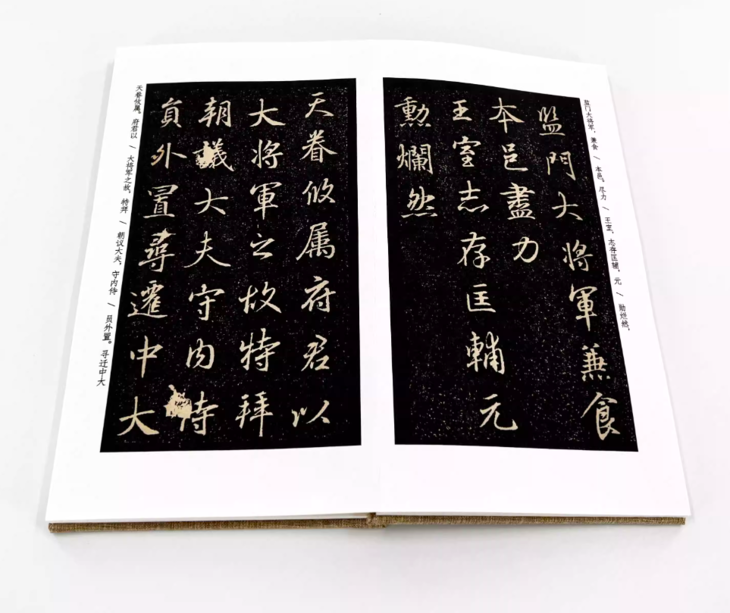 监门大将军，兼食 / 本邑。尽力 / 王室，志存匡辅，元 / 勋烂然，
監門大將軍兼食
本邑盡力
王室志存匡輔元
勳爛然
天眷攸属府君以
大將軍之故特拜
朝議大夫守内侍
員外置尋遷中大
天眷攸属。府君以 / 大将军之故，特拜 / 朝议大夫，守内侍 / 员外置。寻迁中大